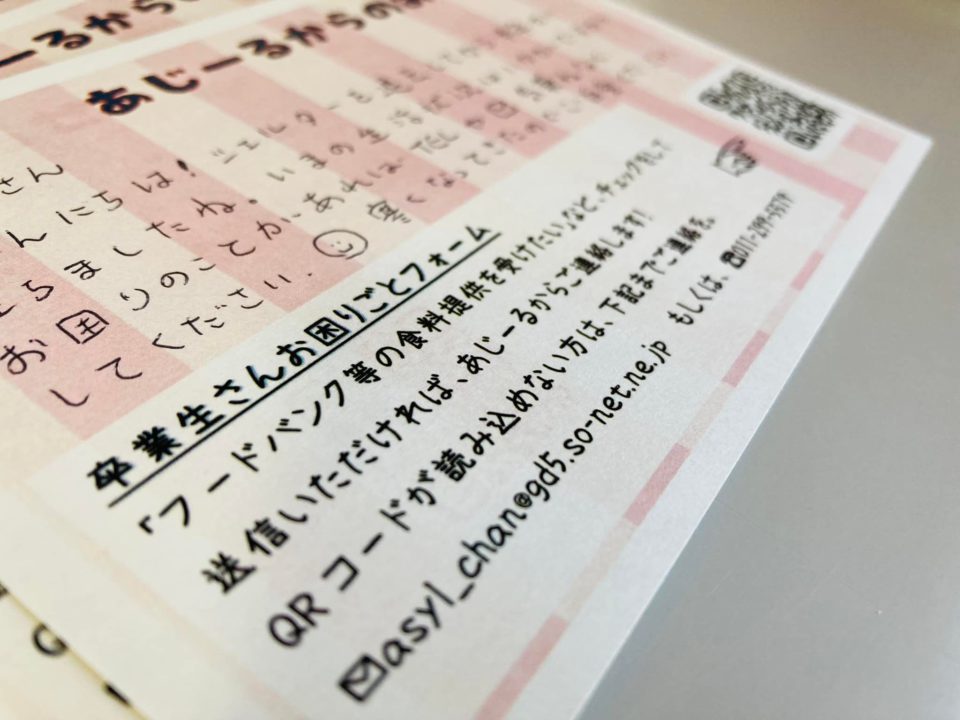 ーるから
あじーるからのお
さん
んにちは！シェルターを退去してから
ちましたね。いまの生活状況は
お困りのことが、あれば TEL や
してください。 寒くなってきたので
卒業生さんお困りごとフォーム
「フードバンク等の食料提供を受けたい」など、チェックをして
送信いただければ、あじーるからご連絡します！
QRコードが読み込めない方は、下記までご連絡を。
asyl_chan@gd5.so-net.ne.jp もしくは、☎011-299-